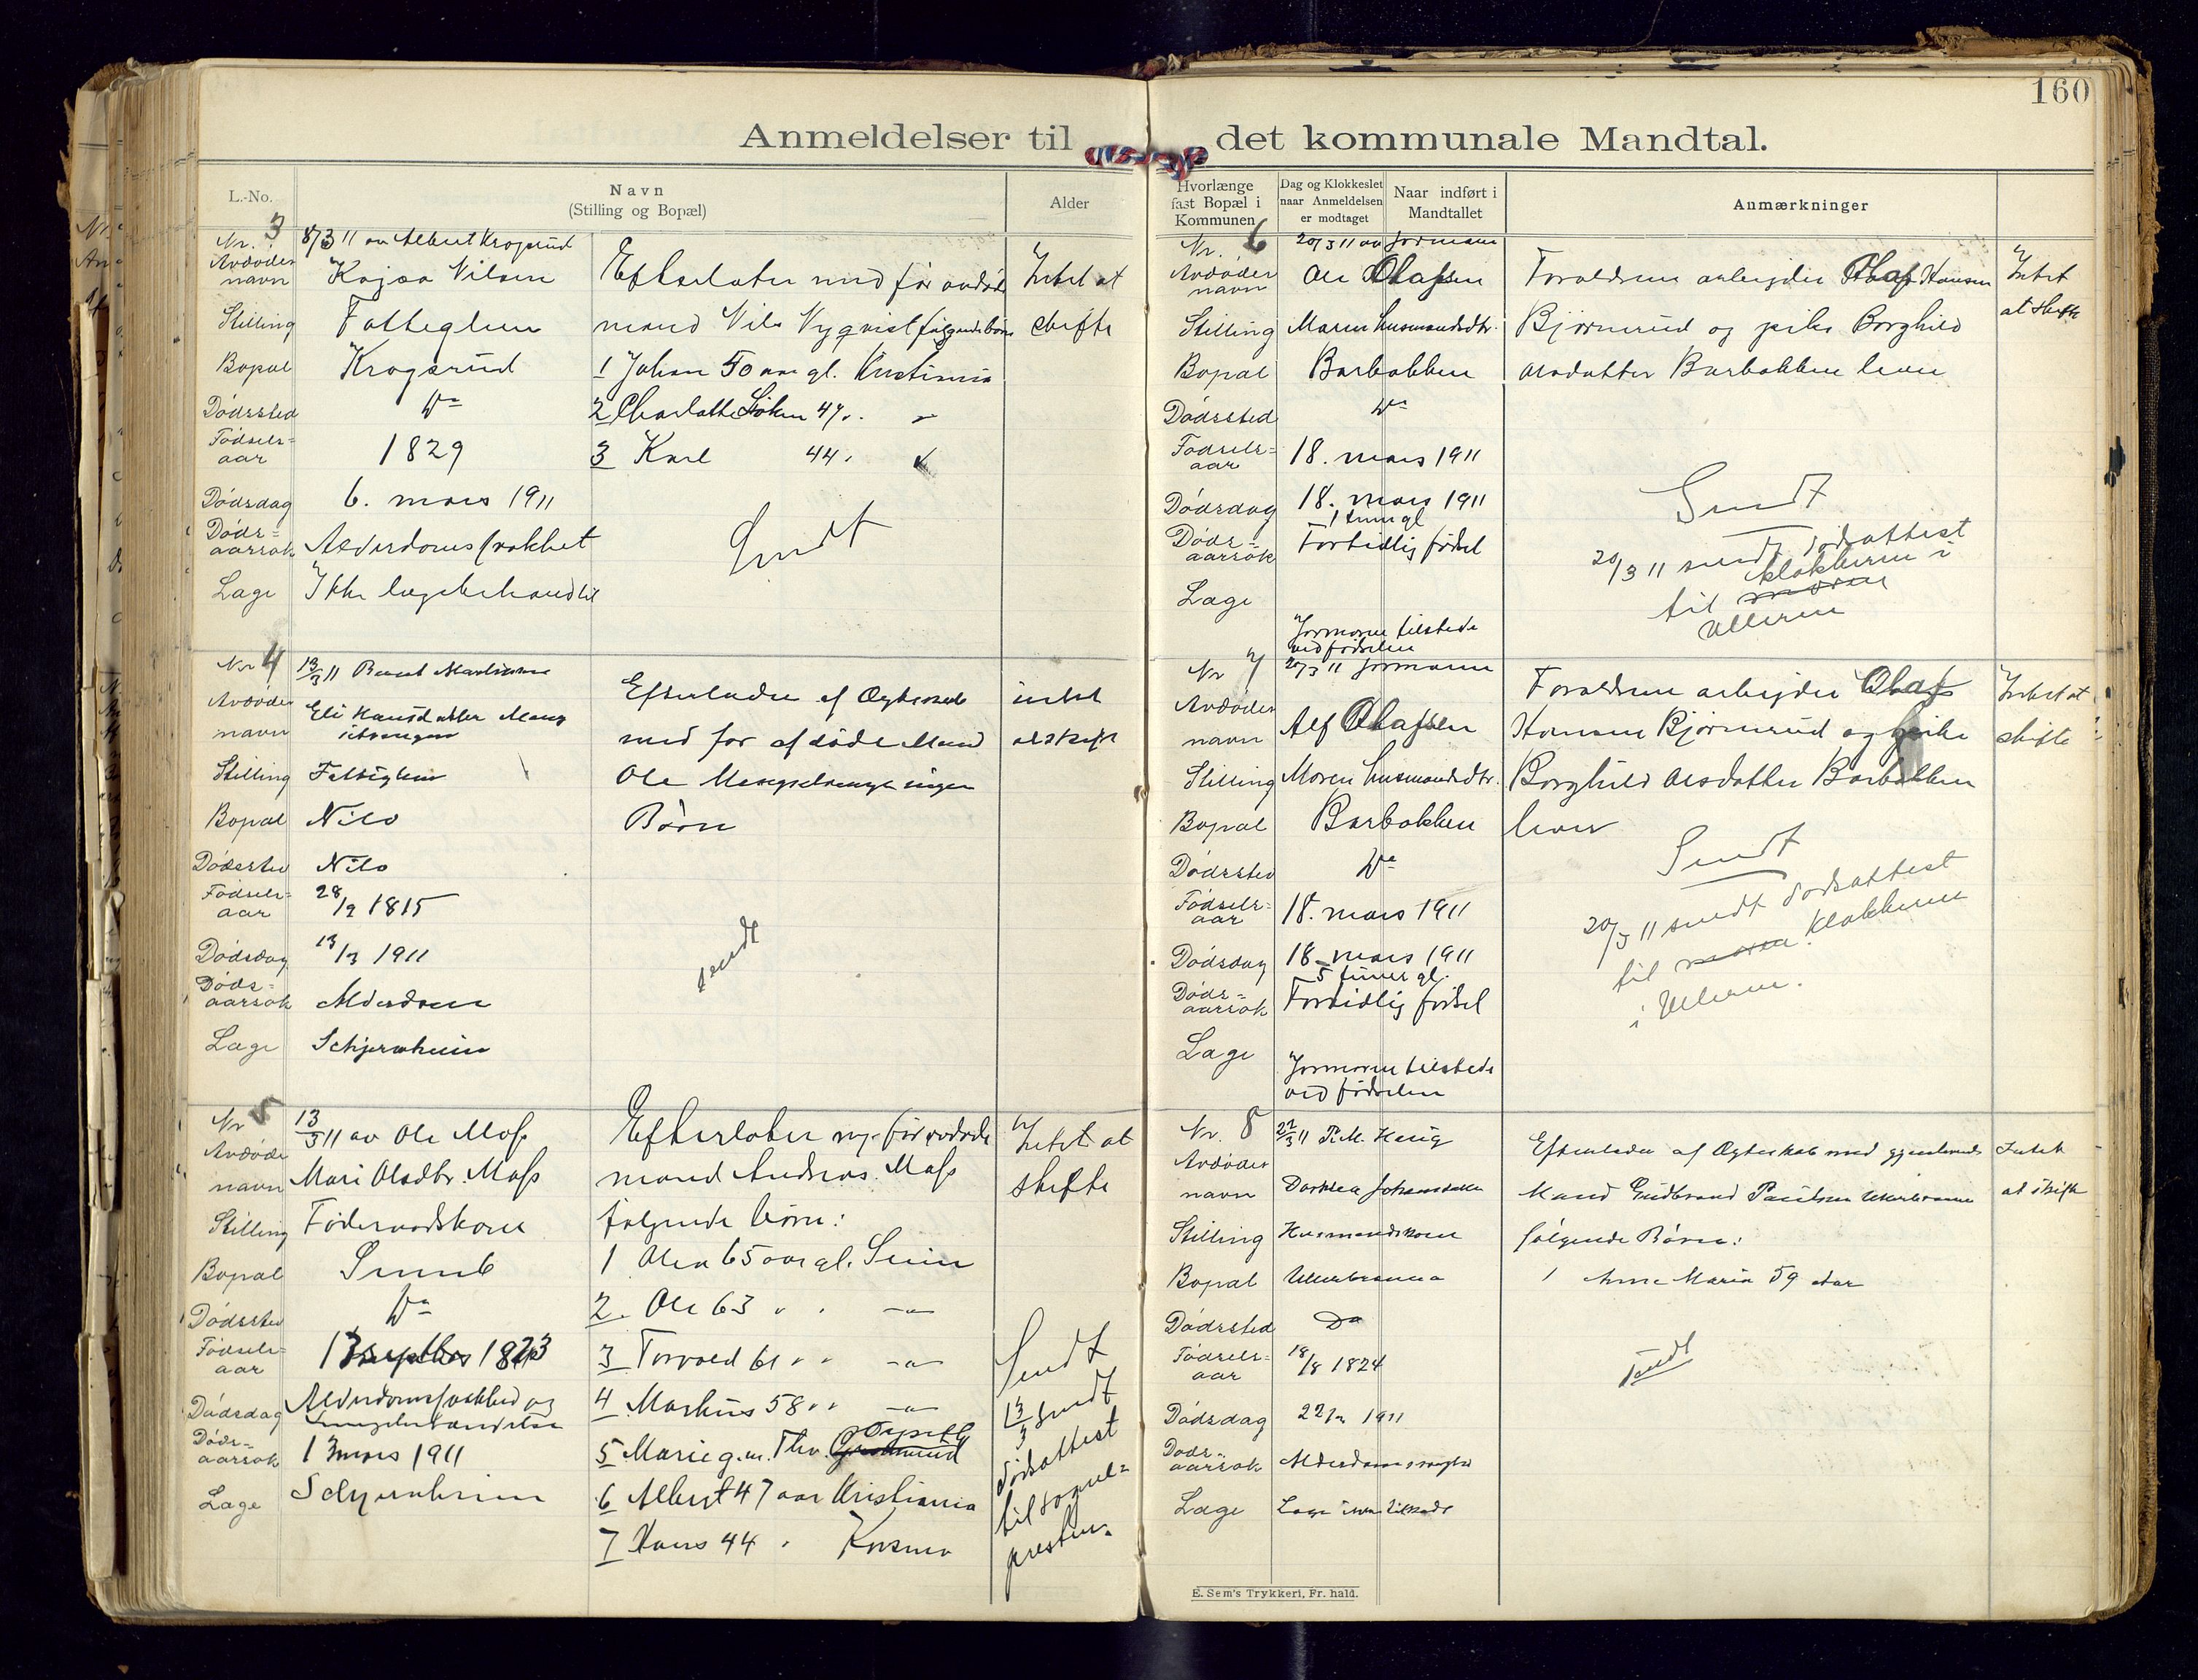 160
Anmeldelser til det kommunale Mandtal.
L.-No.
Navn
(Stilling og Bopæl)
Alder
Nr. 3
8/3 11 av Albert Krogsrud
Avdødes navn
Kajsa Nilsen
Stilling
Fatteglem
Bopæl
Krogsrud
Dødssted
Do
Fødselsaar
1829
Dødsdag
6. mars 1911
Dødsaarsak
Alderdomssvakhet
Læge
Ikke lægebehandlet
Efterlater med før avdøde
mand Nils Nyqvist følgende børn
1 Johan 50 aar gl. Kristiania
2 Charlotte 47 " "
3 Karl 44 "
Sendt
Intet at
skifte
Nr 4
13/3 11 Bernt
Avdødes navn
Eli Hansdatter
Stilling
Fattiglem
Bopæl
Nilo
Dødssted
Nilo
Fødselsaar
28/9 1815
Dødsdag
13/3 1911
Dødsaarsak
Alderdom
Læge
Schjernheim
Efterlader af Ægteskab
med før afdøde Mand
Ole ingen
Børn
sendt
intet
at skifte
Nr 5
13/3 11 av Ole Moss
Avdødes navn
Mari Olsdtr. Moss
Stilling
Føderaadskone
Bopæl
Dødssted
Do
Fødselsaar
1823
Dødsdag
Alderdomssvakhed og
Lungebetændelse
Dødsaarsak
13 mars 1911
Læge
Schjernheim
Efterlater m. før avdøde
mand Andreas Moss
følgende børn:
1 Olea 65 aar gl.
2. Ole 63 " " —"—
3 Torvald 61 " " —"—
4 Markus 58 " " —"—
5 Marie g.m. Thv.
6 Albert 47 aar Kristiania
7 Hans 44 " Korsmo
Intet at
skifte
Sendt
13/3 sendt
dødsattest
til sogne-
presten.
Hvorlænge
fast Bopæl i
Kommunen
Dag og Klokkeslet
naar Anmeldelsen
er modtaget
Naar indført i
Mandtallet
Anmærkninger
Nr. 6
20/3 11 av jormoren
Avdødes navn
Ole Olafsen
Stilling
Moren husmandsdtr.
Bopæl
Barbakken
Dødssted
Do
Fødselsaar
18. mars 1911
Dødsdag
18. mars 1911
1 time gl
Dødsaarsak
Fortidlig fødsel
Læge
Jormoren tilstede
ved fødselen
Forældrene arbeider Olaf Hansen
Bjørnerud og pike Borghild
Olsdatter Barbakken lever
Sendt
20/3 11 sendt dødsattest
til moren klokkeren i
Ulleren
Intet
at skifte
Nr 7
20/3 11 jormoren
Avdødes navn
Alf Olafsen
Stilling
Moren husmandsdtr.
Bopæl
Barbakken
Dødssted
Do
Fødselsaar
18. mars 1911
Dødsdag
18. mars 1911
5 timer gl.
Dødsaarsak
Fortidlig fødsel
Læge
Jormoren tilstede
ved fødselen
Forældrene arbeider Olaf
Hansen Bjørnerud og pike
Borghild Olsdatter Barbakken
lever
Sendt
20/3 11 sendt dødsattest
til moren klokkeren
i Ulleren.
Intet at
skifte
Nr. 8
22/3 11 P.M. Haug
Avdødes navn
Dorthea Johansdatter
Stilling
Husmandskone
Bopæl
Ullerbranna
Dødssted
Do
Fødselsaar
18/8 1824
Dødsdag
22/3 1911
Dødsaarsak
Alderdomssvaghed
Læge
Læge ikke tilkaldt
Efterlader af Ægteskab med gjenlevende
Mand Gudbrand Paulsen Ullerbranna
følgende Børn:
1 Anne Maria 59 Aar
Sendt
Intet
at skifte
E. Sem's Trykkeri, Fr.hald.